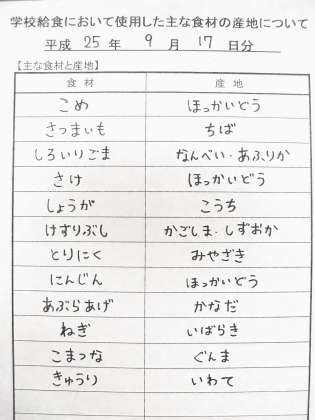 学校給食において使用した主な食材の産地について
平成 25 年 9 月 17 日分
【主な食材と産地】
食材 産地
こめ ほっかいどう
さつまいも ちば
しろいりごま なんべい・あふりか
さけ ほっかいどう
しょうが こうち
けずりぶし かごしま・しずおか
とりにく みやざき
にんじん ほっかいどう
あぶらあげ かなだ
ねぎ いばらき
こまつな ぐんま
きゅうり いわて